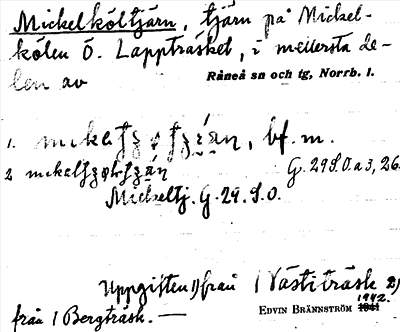 Mickelköltjärn, tjärn på Mickel-
kölen Ö. Lappträsket, i mellersta de-
len av
Råneå sn och tg, Norrb. l.
1. bf. m.
2 G. 29 S.O. a 3, 26.
Mickeltj. G. 29. S.O.
Uppgiften 1) från / Västiträsk 2)
från / Bergträsk. —
EDVIN BRÄNNSTRÖM 1942.